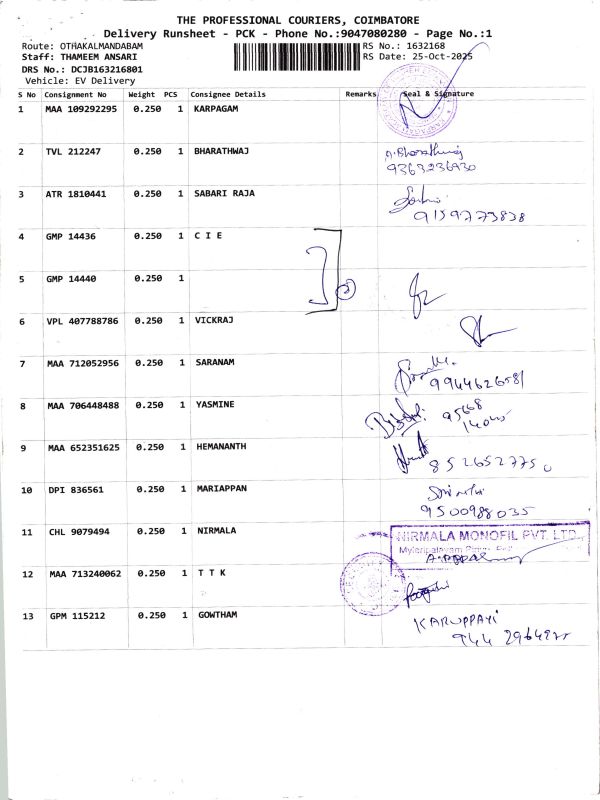 THE PROFESSIONAL COURIERS, COIMBATORE
Delivery Runsheet - PCK - Phone No.:9047080280 - Page No.:1
Route: OTHAKALMANDABAM RS No.: 1632168
Staff: THAMEEM ANSARI RS Date: 25-Oct-2025
DRS No.: DCJB163216801
Vehicle: EV Delivery
S No Consignment No Weight PCS Consignee Details Remarks Seal & Signature
1 MAA 109292295 0.250 1 KARPAGAM
2 TVL 212247 0.250 1 BHARATHWAJ
9363236930
3 ATR 1810441 0.250 1 SABARI RAJA
9159773838
4 GMP 14436 0.250 1 C I E
5 GMP 14440 0.250 1
6 VPL 407788786 0.250 1 VICKRAJ
7 MAA 712052956 0.250 1 SARANAM
9944626581
8 MAA 706448488 0.250 1 YASMINE
9 MAA 652351625 0.250 1 HEMANANTH
8526527750
10 DPI 836561 0.250 1 MARIAPPAN
9500988035
11 CHL 9079494 0.250 1 NIRMALA
NIRMALA MONOFIL PVT. LTD.,
12 MAA 713240062 0.250 1 T T K
13 GPM 115212 0.250 1 GOWTHAM
KARUPPAYI